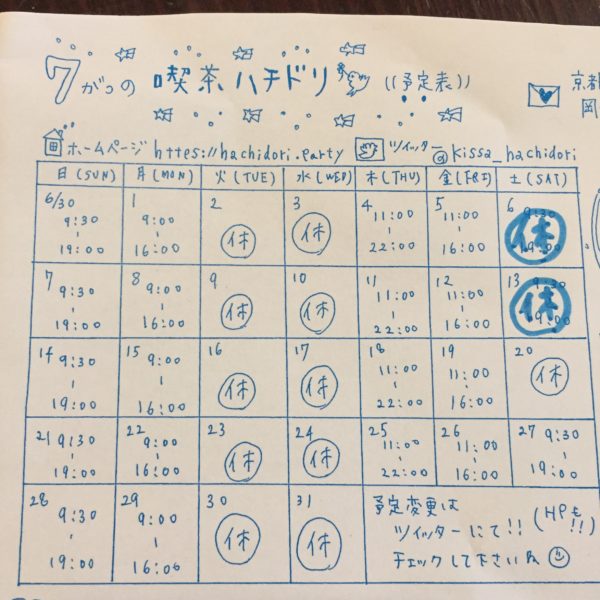 7がつの 喫茶ハチドリ ((予定表))
京都
岡
ホームページ https://hachidori.party ツイッター @kissa_hachidori
日(SUN) 月(MON) 火(TUE) 水(WED) 木(THU) 金(FRI) 土(SAT)
6/30 1 2 3 4 5 6
9:30 - 19:00 9:00 - 16:00 休 休 11:00 - 22:00 11:00 - 16:00 9:30 - 19:00 休
7 8 9 10 11 12 13
9:30 - 19:00 9:00 - 16:00 休 休 11:00 - 22:00 11:00 - 16:00 休
14 15 16 17 18 19 20
9:30 - 19:00 9:00 - 16:00 休 休 11:00 - 22:00 11:00 - 16:00 休
21 22 23 24 25 26 27
9:30 - 19:00 9:00 - 16:00 休 休 11:00 - 22:00 11:00 - 16:00 9:30 - 19:00
28 29 30 31
9:30 - 19:00 9:00 - 16:00 休 休
予定変更は
ツイッターにて!! (HPも!!)
チェックして下さいね